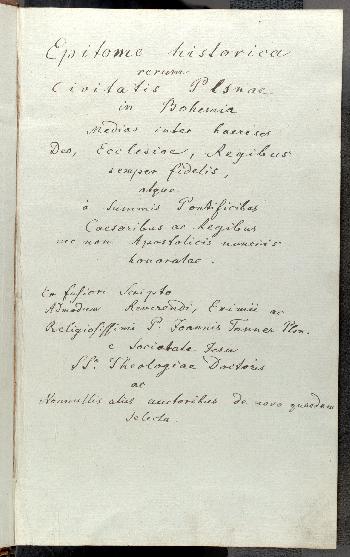 Epitome historica
rerum
Civitatis Plsnae
in Bohemia
Medias inter haereses
Deo, Ecclesiae, Regibus
semper fidelis,
atque
à Summis Pontificibus
Caesaribus ac Regibus
nec non Apostolicis nunciis
honoratae.
Ex fusiori Scripto
Admodum Reverendi, Eximii ac
Religiosissimi P. Joannis Tanner
e Societate Jesu
SS. Theologiae Doctoris
ac
Nonnullis aliis auctoribus de novo quaedam
selecta.